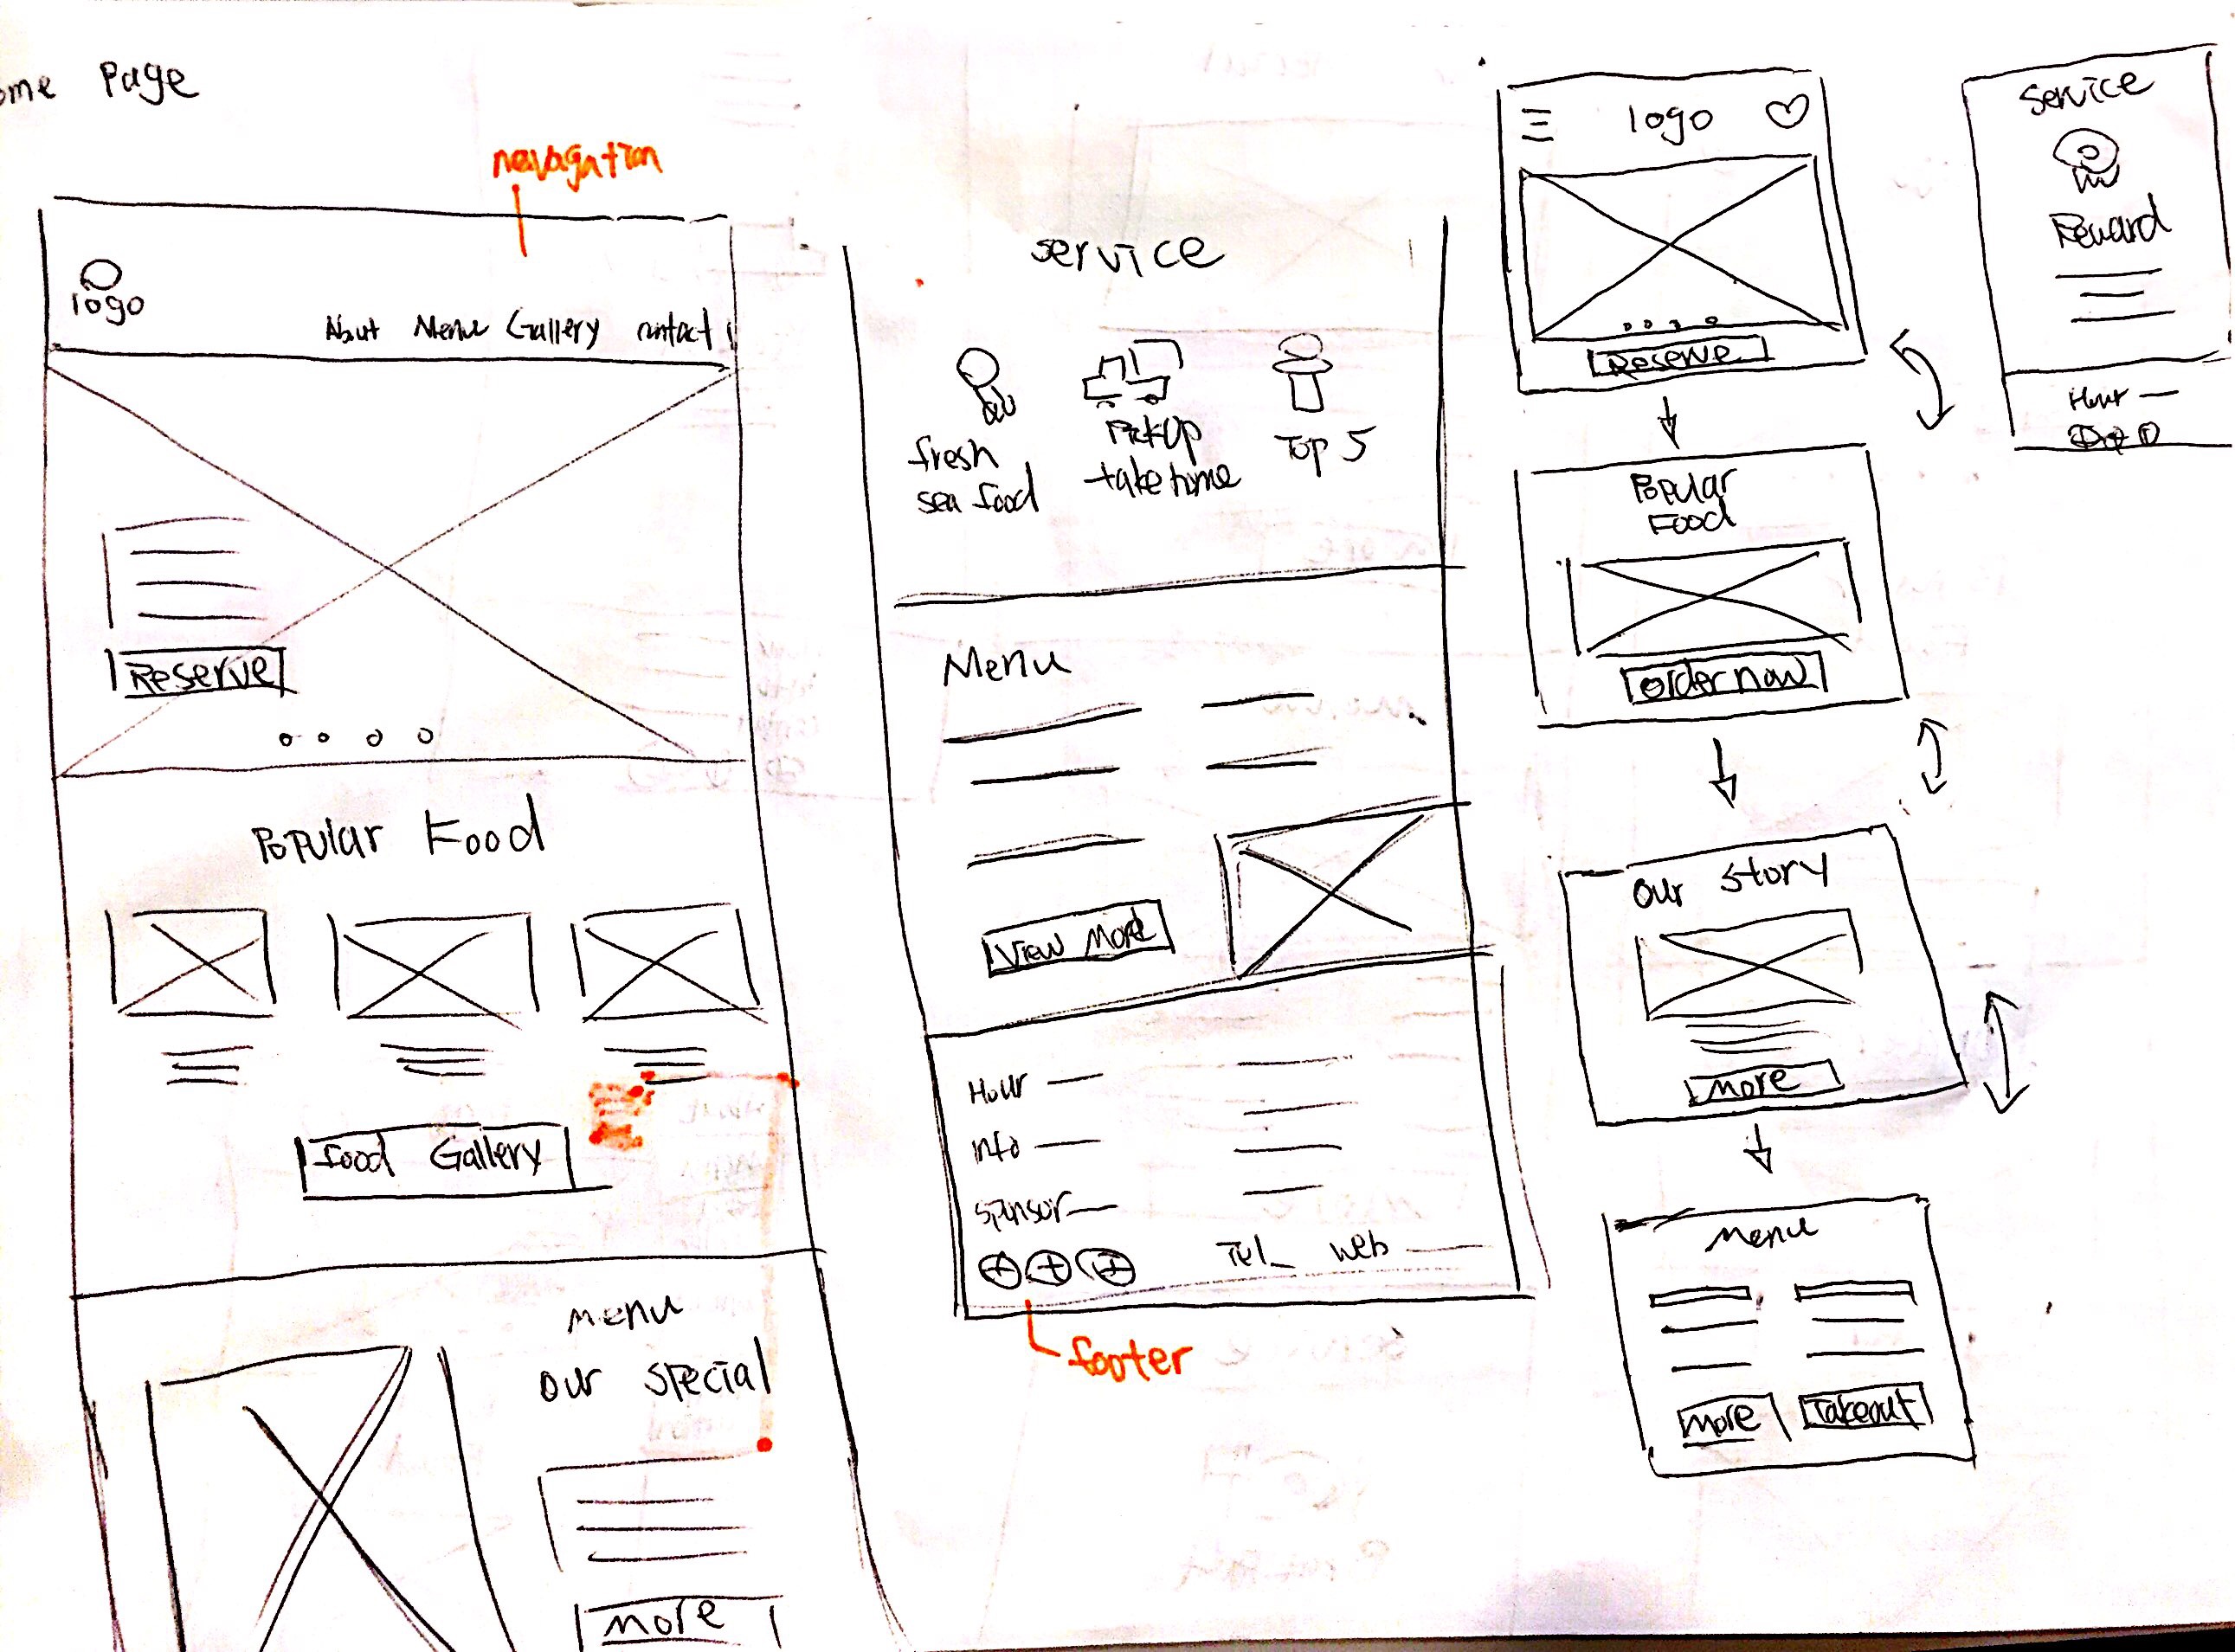 ome Page
nevagation
logo
About Menu Gallery contact
Reserve
Popular Food
Food Gallery
menu
our special
More
service
fresh
sea food
PickUp
take home
Top 5
Menu
View More
Hour
info
sponsor
Tel web
footer
logo
Reserve
Popular
Food
order now
our story
more
Menu
more Takeout
Service
Reward
Hour